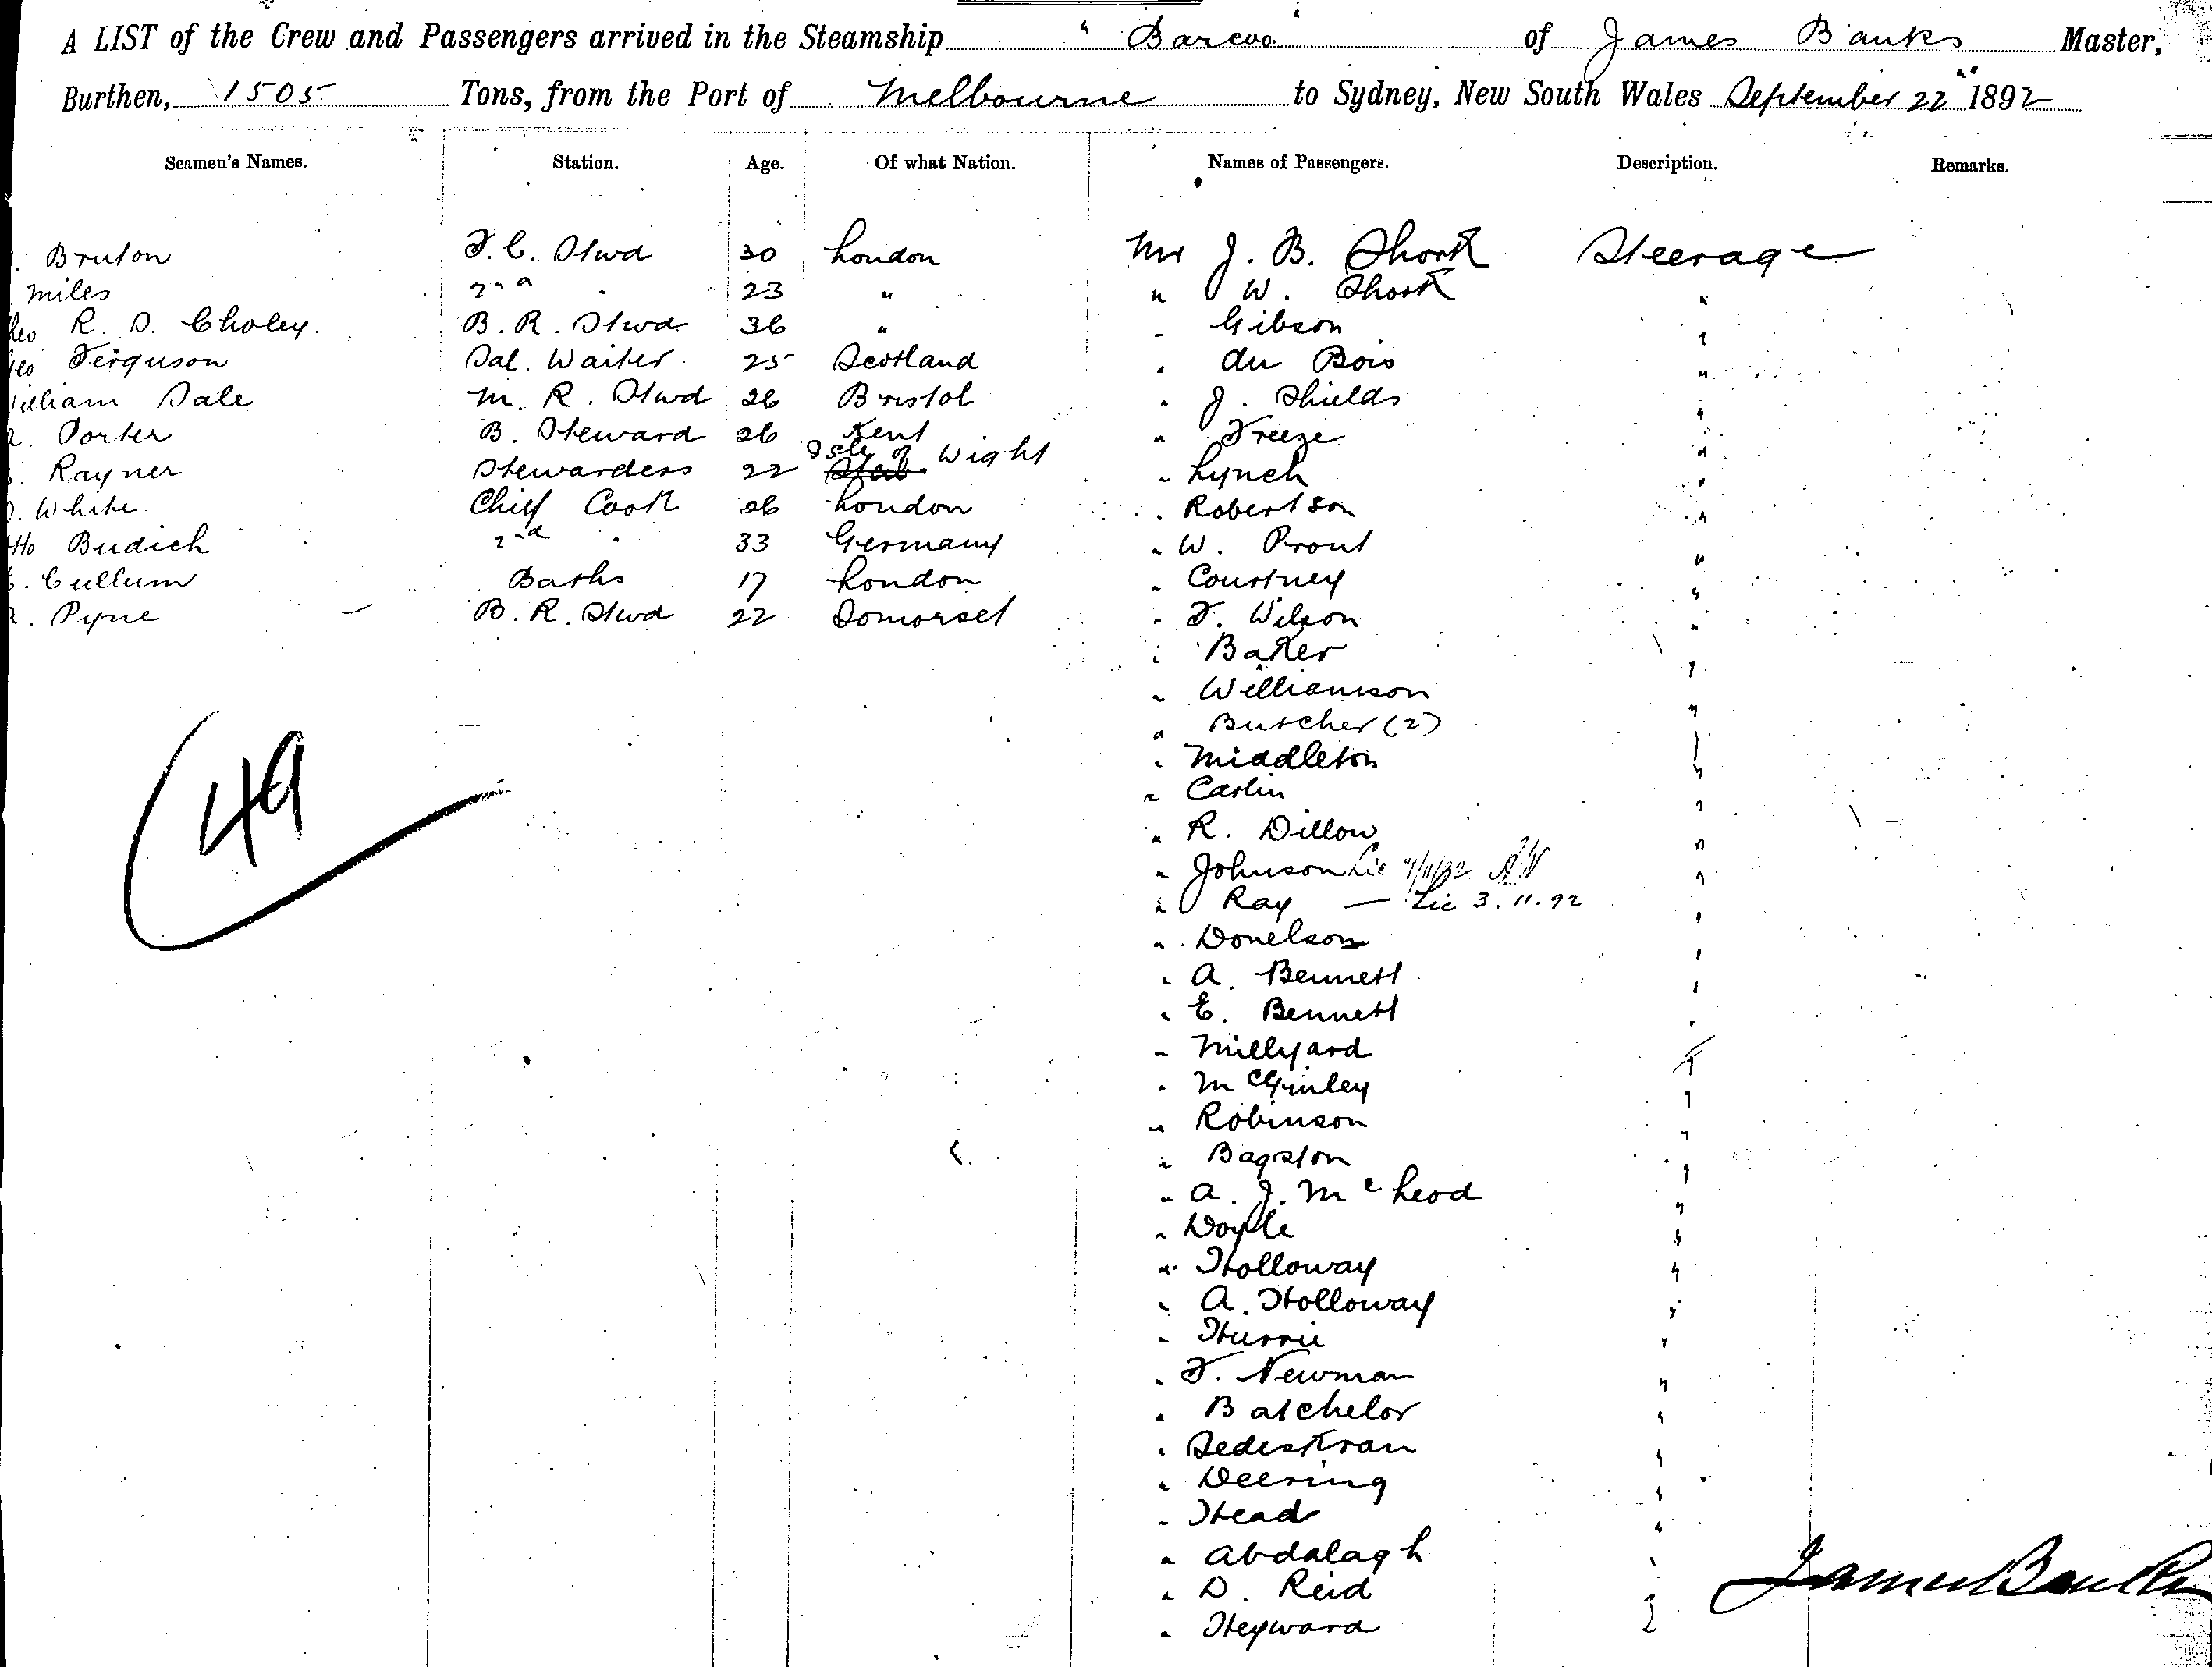 A LIST of the Crew and Passengers arrived in the Steamship "Barcoo" of James Banks Master,
Burthen, 1505 Tons, from the Port of Melbourne to Sydney, New South Wales September 22" 1892
Seamen's Names. Station. Age. Of what Nation. Names of Passengers. Description. Remarks.
Bruton F. C. Stwd 30 London Mr J. B. Short Steerage
Miles 2nd " 23 " " W. Short "
Geo R. S. Choley. B. R. Stwd 36 " " Gibson "
Geo Ferguson Sal. Waiter 25 Scotland " du Bois "
William Sale M. R. Stwd 26 Bristol " J. Shields "
Porter B. Steward 26 Kent " Freeze "
Rayner Stewardess 22 Isle of Wight " Lynch "
White Chief Cook 26 London " Robertson "
Otto Budich 2nd " 33 Germany " W. Prout "
Cullum Baths 17 London " Courtney "
Pyne — B. R. Stwd 22 Somorset " F. Wilson "
" Baker "
" Williamson "
" Butcher (2) "
" Middleton "
" Carlin "
" R. Dillon "
" Johnson Lic 4/11/92 "
" Ray — Lic 3.11.92 "
" Donelson "
" A. Bennett "
" E. Bennett "
" Millyard "
" McGinley "
" Robinson "
" Bagston "
" A. J. McLeod "
" Doyle "
" Holloway "
" A. Holloway "
" Hurrie "
" F. Newman "
" Batchelor "
" Deering "
" Head "
" Abdalagh "
" D. Reid "
" Heyward "
49
James Banks